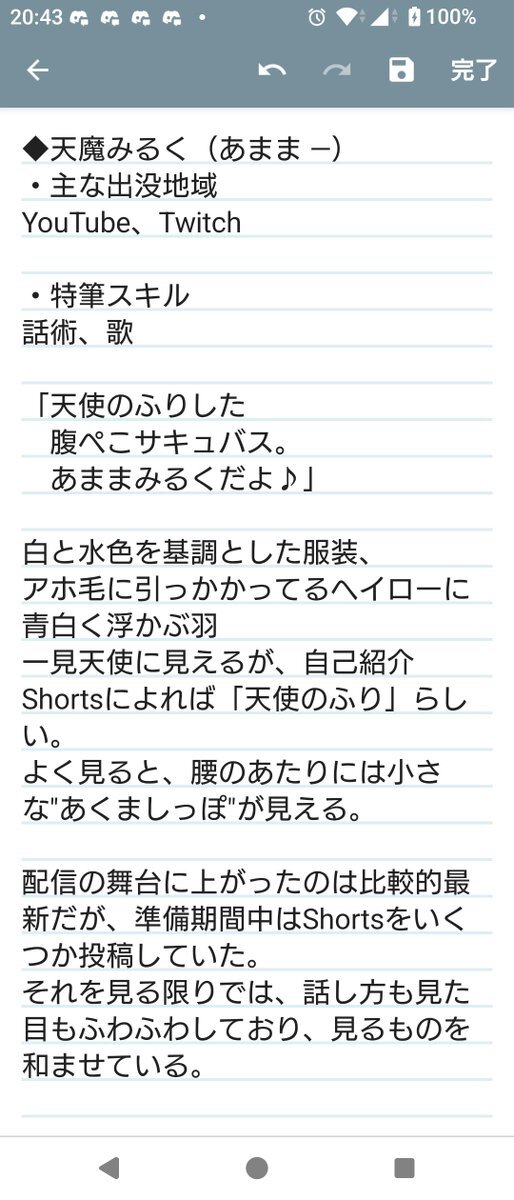 20:43
100%
完了
◆天魔みるく（あまま ―）
・主な出没地域
YouTube、Twitch
・特筆スキル
話術、歌
「天使のふりした
腹ぺこサキュバス。
あままみるくだよ♪」
白と水色を基調とした服装、
アホ毛に引っかかってるヘイローに
青白く浮かぶ羽
一見天使に見えるが、自己紹介
Shortsによれば「天使のふり」らし
い。
よく見ると、腰のあたりには小さ
な"あくましっぽ"が見える。
配信の舞台に上がったのは比較的最
新だが、準備期間中はShortsをいく
つか投稿していた。
それを見る限りでは、話し方も見た
目もふわふわしており、見るものを
和ませている。